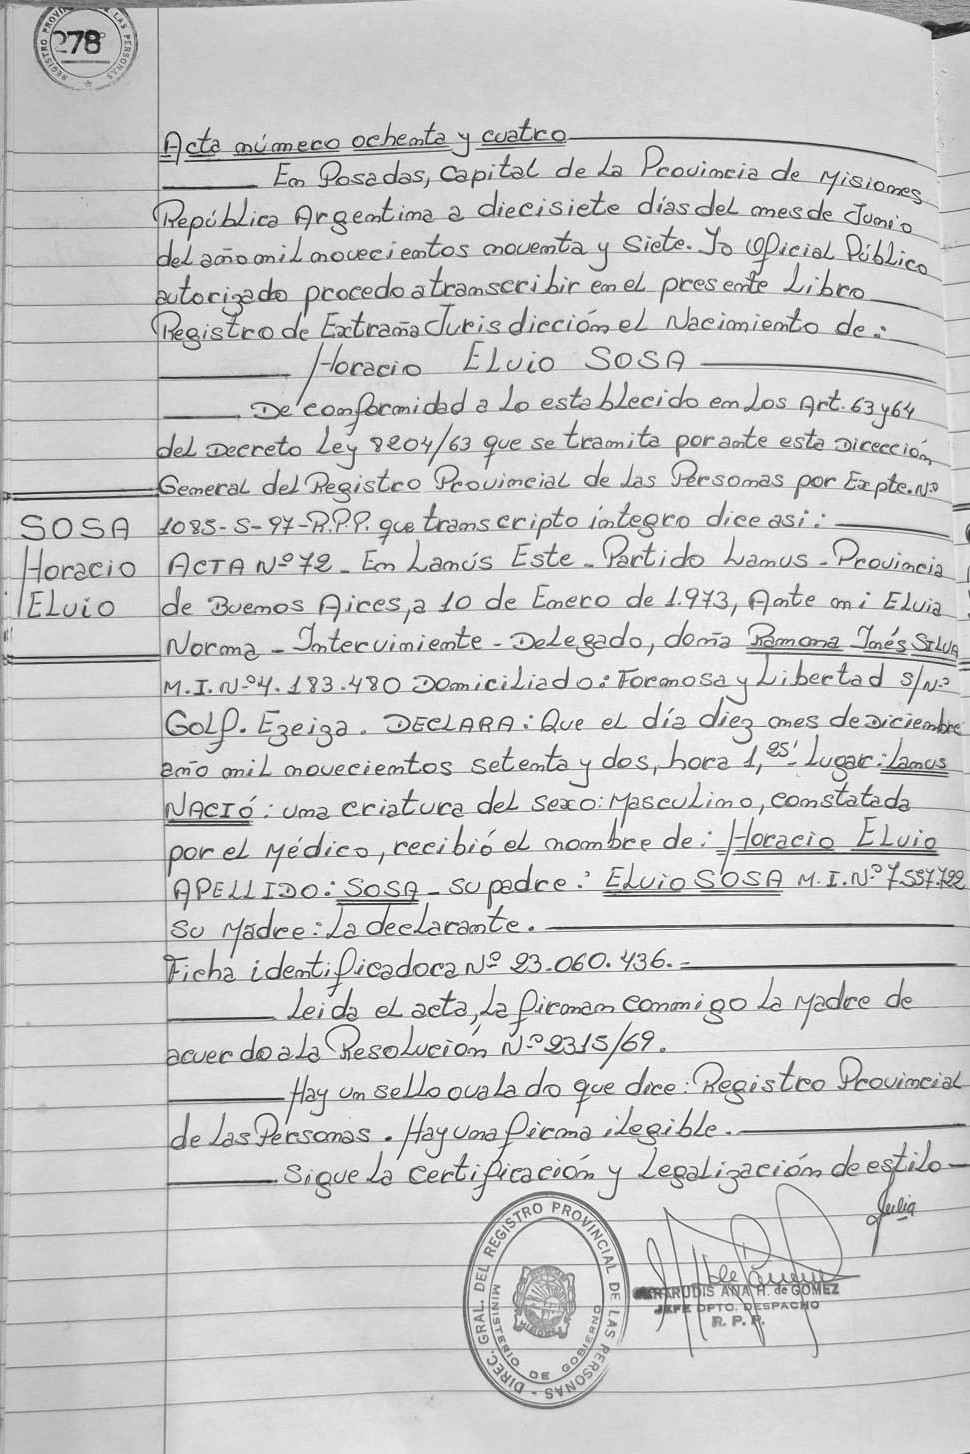 REGISTRO PROVIN LAS PERSONAS
278
Acta número ochenta y cuatro
En Posadas, Capital de La Provincia de Misiones
República Argentina a diecisiete días del mes de Junio
del año mil novecientos noventa y siete. Yo Oficial Público
autorizado procedo a transcribir en el presente Libro
Registro de Extraña Jurisdicción el Nacimiento de:
Horacio ELvio SOSA
De conformidad a Lo establecido en Los Art. 63 y 64
del Decreto Ley 8204/63 que se tramita por ante esta Dirección
General del Registro Provincial de las Personas por Expte. Nº
SOSA
Horacio
ELvio
1085-S-97-R.P.P. que transcripto integro dice asi:
ACTA Nº 72. En Lanús Este - Partido Lanus - Provincia
de Buenos Aires, a 10 de Enero de 1.973, Ante mi ELvia
Norma - Interviniente - Delegado, doña Ramona Inés SILVA
M.I. Nº 4.183.480 Domiciliado: Formosa y Libertad S/Nº
Golf. Ezeiza. DECLARA: Que el día diez mes de Diciembre
año mil novecientos setenta y dos, hora 1,25' Lugar: Lanus
NACIÓ: una criatura del sexo: Masculino, constatada
por el Médico, recibió el nombre de: Horacio ELvio
APELLIDO: SOSA - su padre: ELvio SOSA M.I. Nº 7.557.722
Su Madre: La declarante.
Ficha identificadora Nº 23.060.436.-
Leida el acta, La firman conmigo La Madre de
acuerdo a la Resolución Nº 2315/69.
Hay un sello ovalado que dice: Registro Provincial
de Las Personas. Hay una firma ilegible.
Sigue La certificación y Legalización de estilo
Julia
DIREC. GRAL. DEL REGISTRO PROVINCIAL DE LAS PERSONAS
MINISTERIO DE GOBIERNO
MISIONES
ANA H. de GOMEZ
JEFE DPTO. DESPACHO
R. P. P.